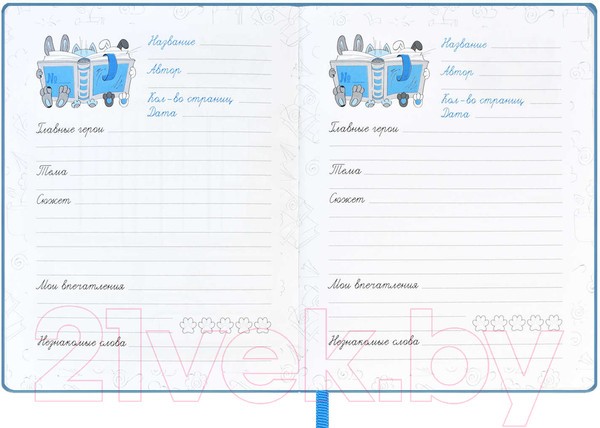 №
Название
Автор
Кол-во страниц
Дата
Главные герои
Тема
Сюжет
Мои впечатления
Незнакомые слова
№
Название
Автор
Кол-во страниц
Дата
Главные герои
Тема
Сюжет
Мои впечатления
Незнакомые слова
21vek.by